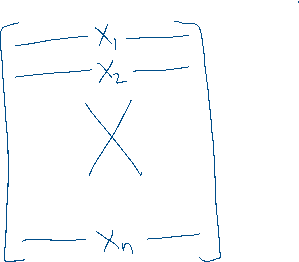 X₁
X₂
X
Xₙ